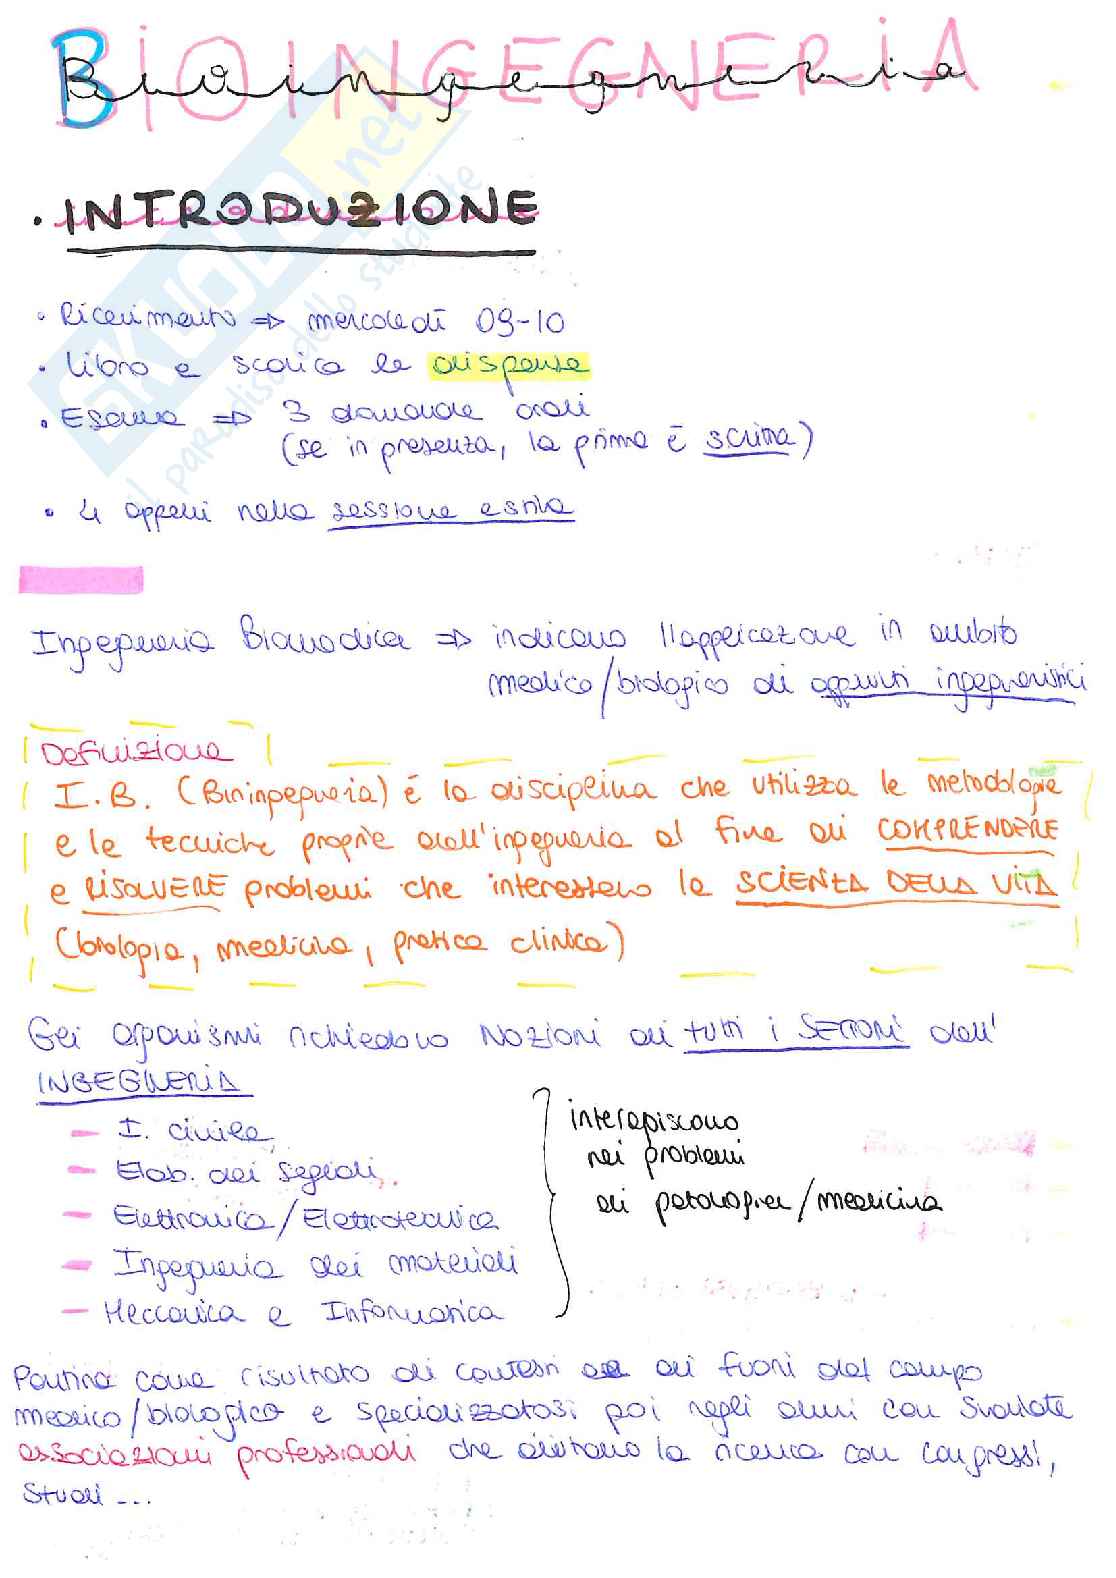 BIOINGEGNERIA
Bioingegneria
SKUOLA.net
il paradiso dello studente
• INTRODUZIONE
• Ricevimento ⇒ mercoledì 09-10
• Libro e scarica le dispense
• Esame ⇒ 3 domande orali
(se in presenza, la prima è scritta)
• 4 appelli nella sessione estiva
Ingegneria Biomedica ⇒ indicano l'applicazione in ambito
medico/biologico di appunti ingegneristici
Definizione
I.B. (Bioingegneria) è la disciplina che utilizza le metodologie
e le tecniche proprie dell'ingegneria al fine di COMPRENDERE
e RISOLVERE problemi che interessano le SCIENZA DELLA VITA
(biologia, medicina, pratica clinica)
Gli organismi richiedono NOZIONI di tutti i SETTORI dell'
INGEGNERIA
– I. civile,
– Elab. dei segnali,
– Elettronica/Elettrotecnica
– Ingegneria dei materiali
– Meccanica e Informatica
interagiscono
nei problemi
di patologia/medicina
come risultato di contesti di fuori dal campo
medico/biologico e specializzatosi poi negli anni con svariate
associazioni professionali che aiutano la ricerca con congressi,
studi ...